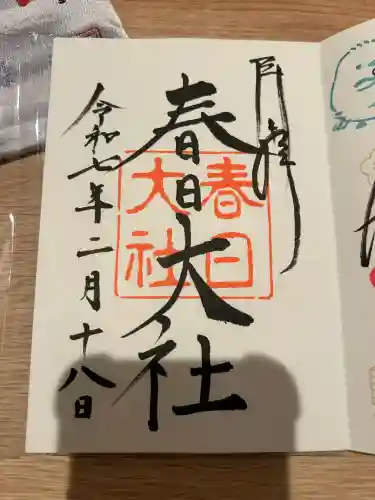 奉拝
春日大社
春日
大社
令和七年二月十八日